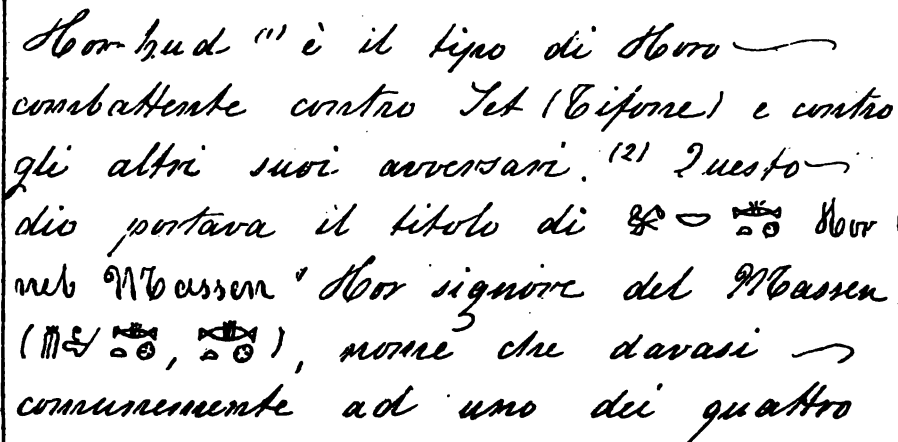 Hor-hud (1) è il tipo di Horo
combattente contro Set (Tifone) e contro
gli altri suoi avversari. (2) Questo
dio portava il titolo di Hor
neb Massen "Hor signore del Massen
( , ), nome che davasi
comunemente ad uno dei quattro